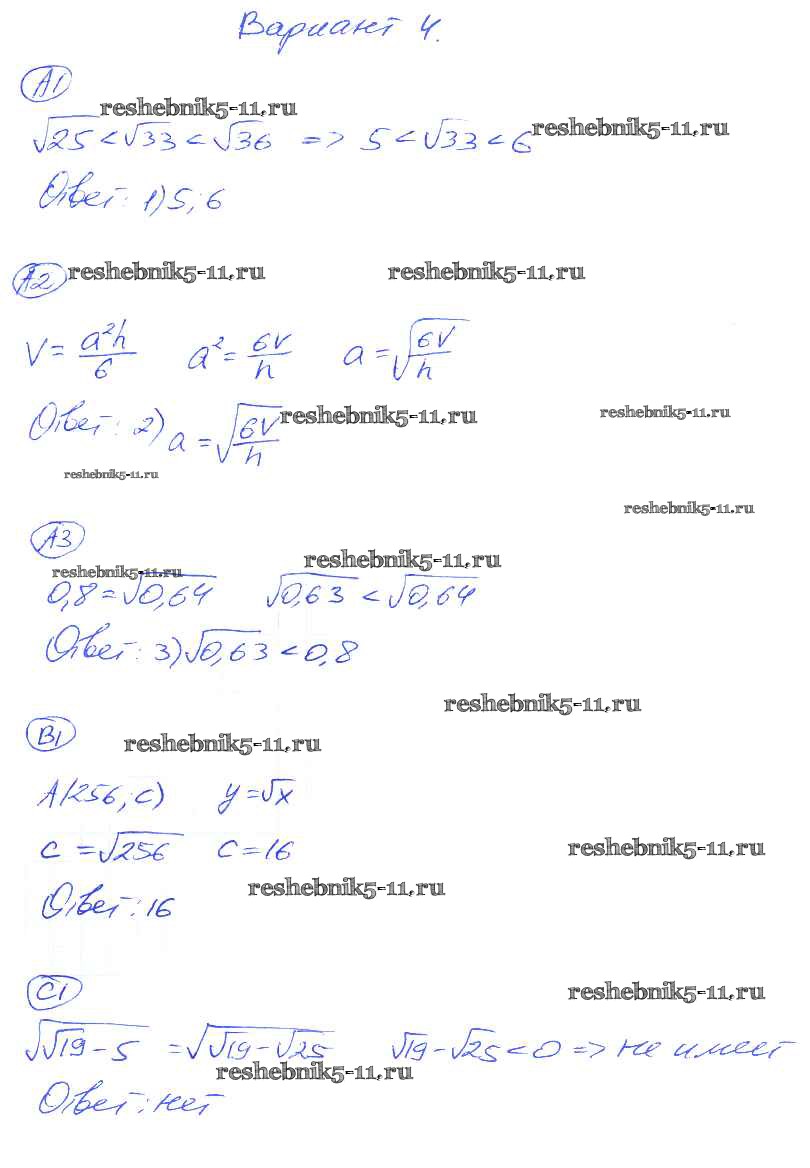 Вариант 4.
А1
reshebnik5-11.ru
√25 < √33 < √36 => 5 < √33 < 6
reshebnik5-11.ru
Ответ: 1) 5; 6
А2
reshebnik5-11.ru
reshebnik5-11.ru
V = a²h/6 a² = 6V/h a = √(6V/h)
Ответ: 2) a = √(6V/h)
reshebnik5-11.ru
reshebnik5-11.ru
reshebnik5-11.ru
reshebnik5-11.ru
А3
reshebnik5-11.ru
reshebnik5-11.ru
0,8 = √0,64 √0,63 < √0,64
Ответ: 3) √0,63 < 0,8
reshebnik5-11.ru
В1
reshebnik5-11.ru
A(256; c) y = √x
c = √256 c = 16
reshebnik5-11.ru
reshebnik5-11.ru
Ответ: 16
С1
reshebnik5-11.ru
√(√19 - 5) = √(√19 - √25) √19 - √25 < 0 => не имеет
reshebnik5-11.ru
Ответ: нет